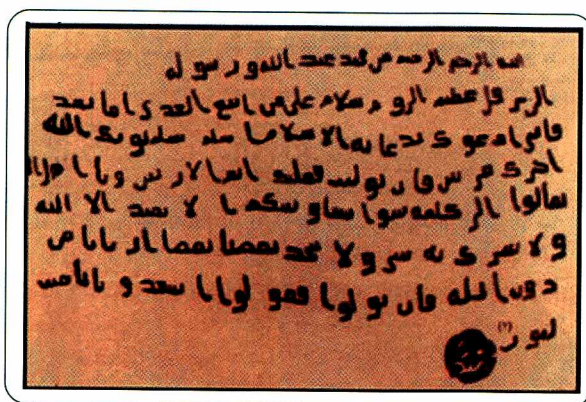 بسم الله الرحمن الرحيم من محمد عبد الله ورسوله
الى هرقل عظيم الروم سلام على من اتبع الهدى اما بعد
فانى ادعوك بدعاية الاسلام اسلم تسلم يوتك الله
اجرك مرتين فان توليت فعليك اثم الاريسين ويا اهل
تعالوا الى كلمة سوا بيننا وبينكم الا نعبد الا الله
ولا نشرك به شيا ولا يتخذ بعضنا بعضا اربابا من
دون الله فان تولوا فقولوا اشهدوا بانا مس
لمون (٢)